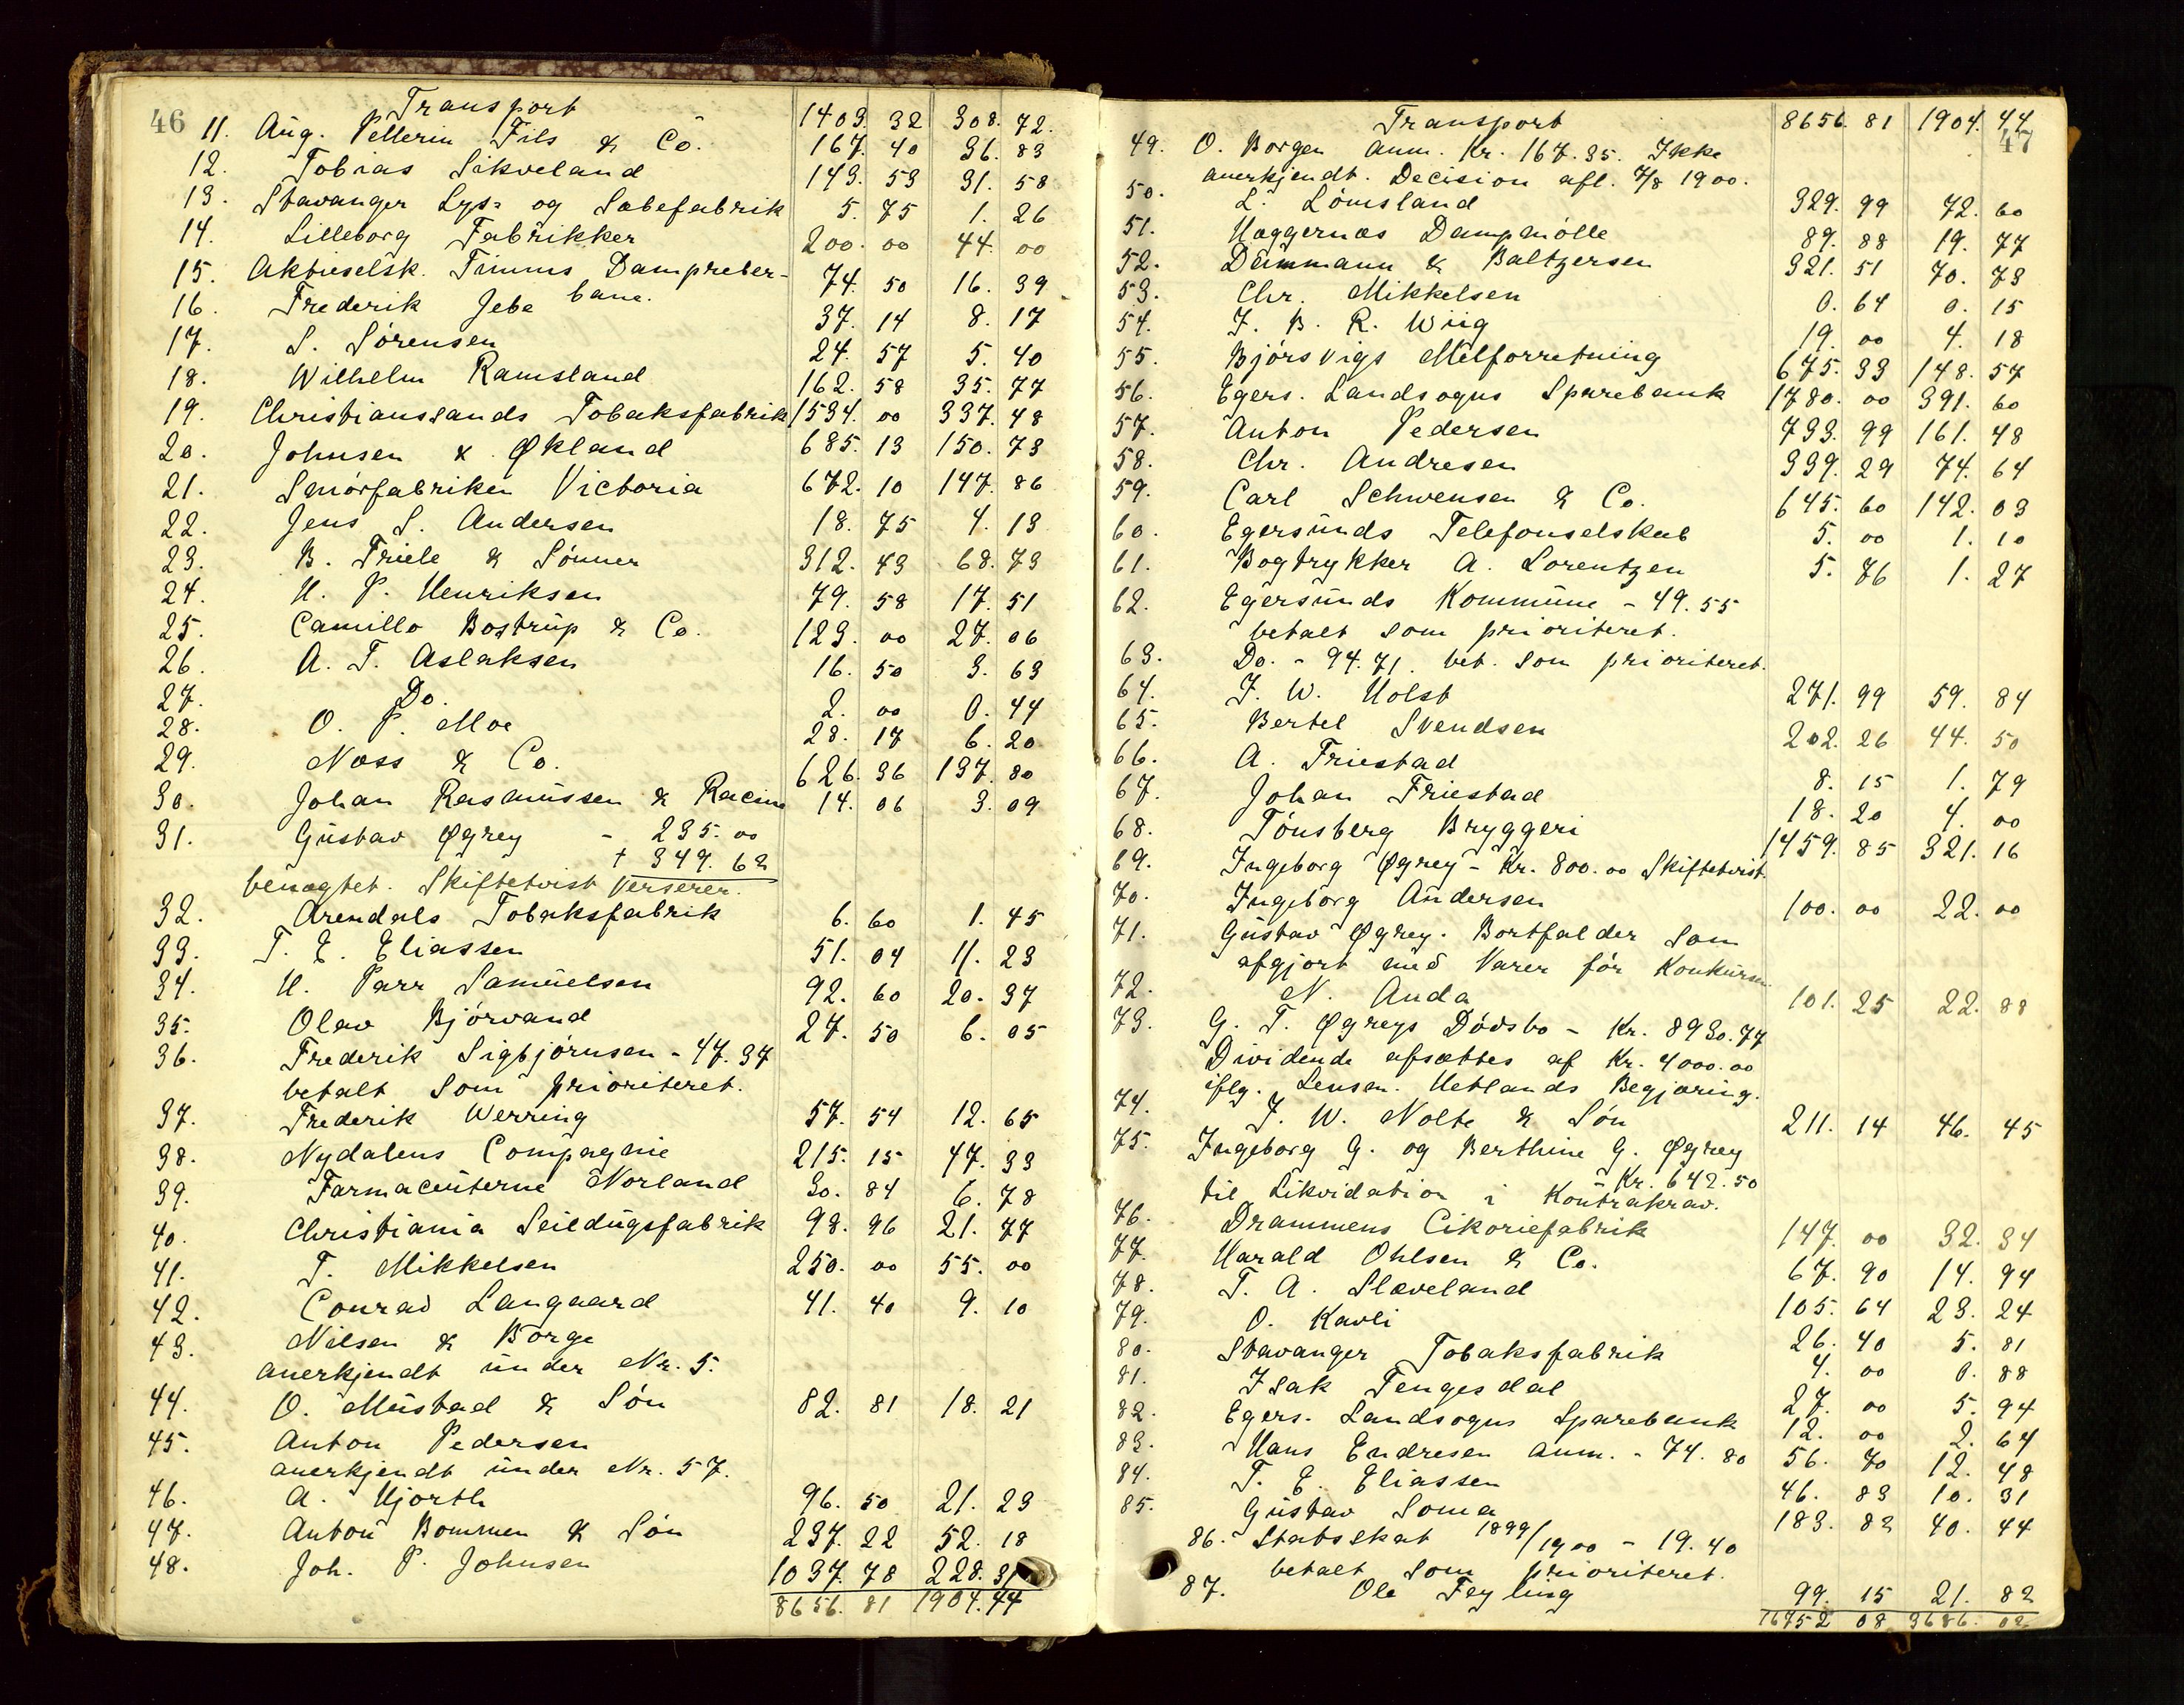 46
Transport 1403. 32 308. 72.
11. Aug. Pellerin Fils & Co. 167. 40 36. 83
12. Tobias Sikveland 143. 53 31. 58
13. Stavanger Lys- og Sæbefabrik 5. 75 1. 26
14. Lilleborg Fabrikker 200. 00 44. 00
15. Aktieselsk. Timms Dampreber-
bane. 74. 50 16. 39
16. Frederik Jebe 37. 14 8. 17
17. S. Sörensen 24. 57 5. 40
18. Wilhelm Ramsland 162. 58 35. 77
19. Christianssands Tobaksfabrik 1534. 00 337. 48
20. Johnsen & Økland 685. 13 150. 73
21. Smörfabriken Victoria 672. 10 147. 86
22. Jens S. Andersen 18. 75 4. 13
23. B. Friele & Sönner 312. 43 68. 73
24. H. P. Henriksen 79. 58 17. 51
25. Camillo Bostrup & Co. 123. 00 27. 06
26. A. T. Aslaksen 16. 50 3. 63
27. Do. 2. 00 0. 44
28. O. P. Moe 28. 17 6. 20
29. Næss & Co. 626. 36 137. 80
30. Johan Rasmussen & Racine 14. 06 3. 09
31. Gustav Øgrey - 235. 00
+ 349. 62
benægtet. Skiftetvist verserer.
32. Arendals Tobaksfabrik 6. 60 1. 45
33. T. E. Eliassen 51. 04 11. 23
34. H. Parr Samuelsen 92. 60 20. 37
35. Olav Björvand 27. 50 6. 05
36. Frederik Sigbjörnsen - 47. 37
betalt som prioriteret.
37. Frederik Werring 57. 54 12. 65
38. Nydalens Compagnie 215. 15 47. 33
39. Farmaceuterne Norland 30. 84 6. 78
40. Christiania Seildugsfabrik 98. 96 21. 77
41. T. Mikkelsen 250. 00 55. 00
42. Conrad Langaard 41. 40 9. 10
43. Nilsen & Borge
anerkjendt under Nr. 5.
44. O. Mustad & Sön 82. 81 18. 21
45. Anton Pedersen
anerkjendt under Nr. 57.
46. A. Hjorth 96. 50 21. 23
47. Anton Bommen & Sön 237. 22 52. 18
48. Joh. P. Johnsen 1037. 78 228. 31
8656. 81 1904. 44
47
Transport 8656. 81 1904. 44
49. O. Borgen anm. Kr. 167. 35. Ikke
anerkjendt. Decision afl. 7/8 1900.
50. L. Lömsland 329. 99 72. 60
51. Haggernæs Dampmölle 89. 88 19. 77
52. Dammann & Baltzersen 321. 51 70. 73
53. Chr. Mikkelsen 0. 64 0. 15
54. J. B. R. Wiig 19. 00 4. 18
55. Björsvigs Melforretning 675. 33 148. 57
56. Egers. Landsogns Sparebank 1780. 00 391. 60
57. Anton Pedersen 733. 99 161. 48
58. Chr. Andresen 339. 29 74. 64
59. Carl Schwensen & Co. 645. 60 142. 03
60. Egersunds Telefonselskab 5. 00 1. 10
61. Bogtrykker A. Lorentzen 5. 76 1. 27
62. Egersunds Kommune - 49. 55
betalt som prioriteret.
63. Do. - 94. 71. bet. som prioriteret.
64. J. W. Holst 271. 99 59. 84
65. Bertel Svendsen 202. 26 44. 50
66. A. Friestad 8. 15 1. 79
67. Johan Friestad 18. 20 4. 00
68. Tönsberg Bryggeri 1459. 85 321. 16
69. Ingeborg Øgrey - Kr. 800. 00 Skiftetvist.
70. Ingeborg Andersen 100. 00 22. 00
71. Gustav Øgrey. Bortfalder som
afgjort med Varer för Konkursen.
72. N. Anda 101. 25 22. 28
73. G. T. Øgreys Dödsbo - Kr. 8930. 77
Dividende afsættes af Kr. 4000. 00
iflg. Lensm. Hetlands Begjæring.
74. J. W. Nolte & Sön 211. 14 46. 45
75. Ingeborg G. og Berthine G. Øgrey
- Kr. 642. 50
til Likvidation i Kontrakrav.
76. Drammens Cikoriefabrik 147. 00 32. 34
77. Harald Ohlsen & Co. 67. 90 14. 94
78. T. A. Slæveland 105. 64 23. 24
79. O. Kavli 26. 40 5. 81
80. Stavanger Tobaksfabrik 4. 00 0. 88
81. Isak Tengesdal 27. 00 5. 94
82. Egers. Landsogns Sparebank 12. 00 2. 64
83. Hans Endresen anm. - 74. 80 56. 70 12. 48
84. T. E. Eliassen 46. 83 10. 31
85. Gustav Soma 183. 82 40. 44
86. Statsskat 1899/1900 - 19. 40
betalt som prioriteret.
87. Ole Feyling 99. 15 21. 82
16752 08 3686. 02